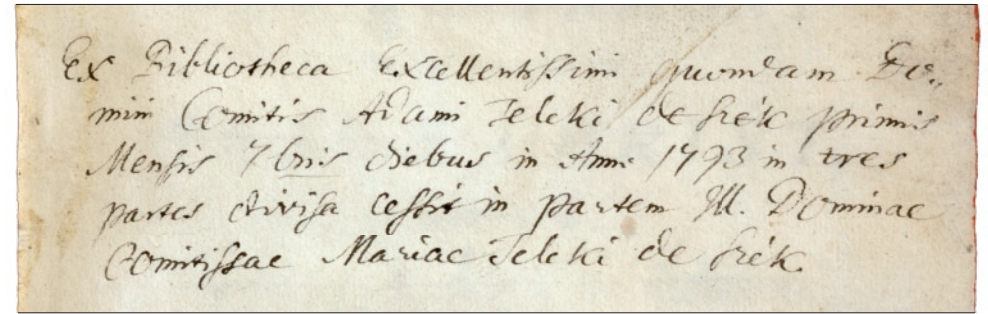 Ex Bibliotheca Excellentissimi quondam Do„
mini Comitis Adami Teleki de Szék primis
Mensis 7bris diebus in Anno 1793 in tres
partes divisa cessit in partem Ill. Dominae
Comitissae Mariae Teleki de Szék